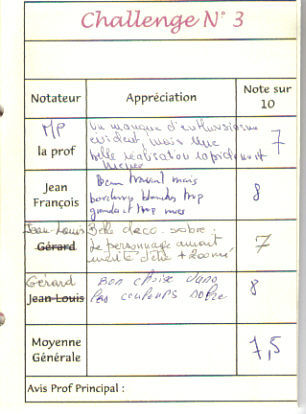 Challenge N° 3
Notateur Appréciation Note sur 10
MP la prof
un manque d'enthousiasme
évident, mais une
belle réalisation
7
Jean François
Beau travail mais
trop
trop
8
Jean-Louis Gérard
Belle déco sobre.
Le personnage aurait
mérité d'être + zoomé
7
Gérard Jean-Louis
Bon choix dans
les couleurs sobre
8
Moyenne Générale 7,5
Avis Prof Principal :